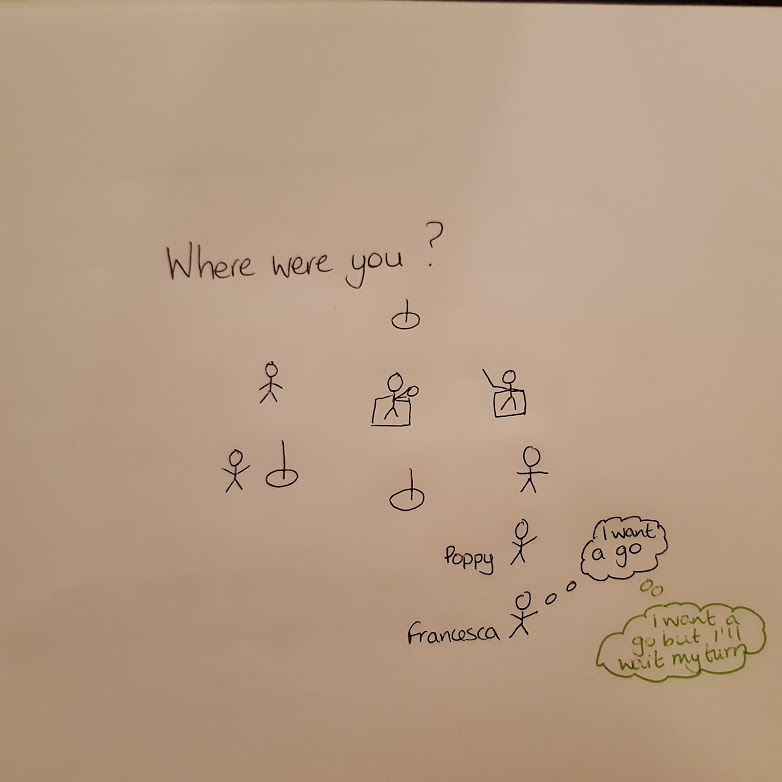 Where were you?
Poppy
i want
a go
Francesca
i want a
go but I'll
wait my turn